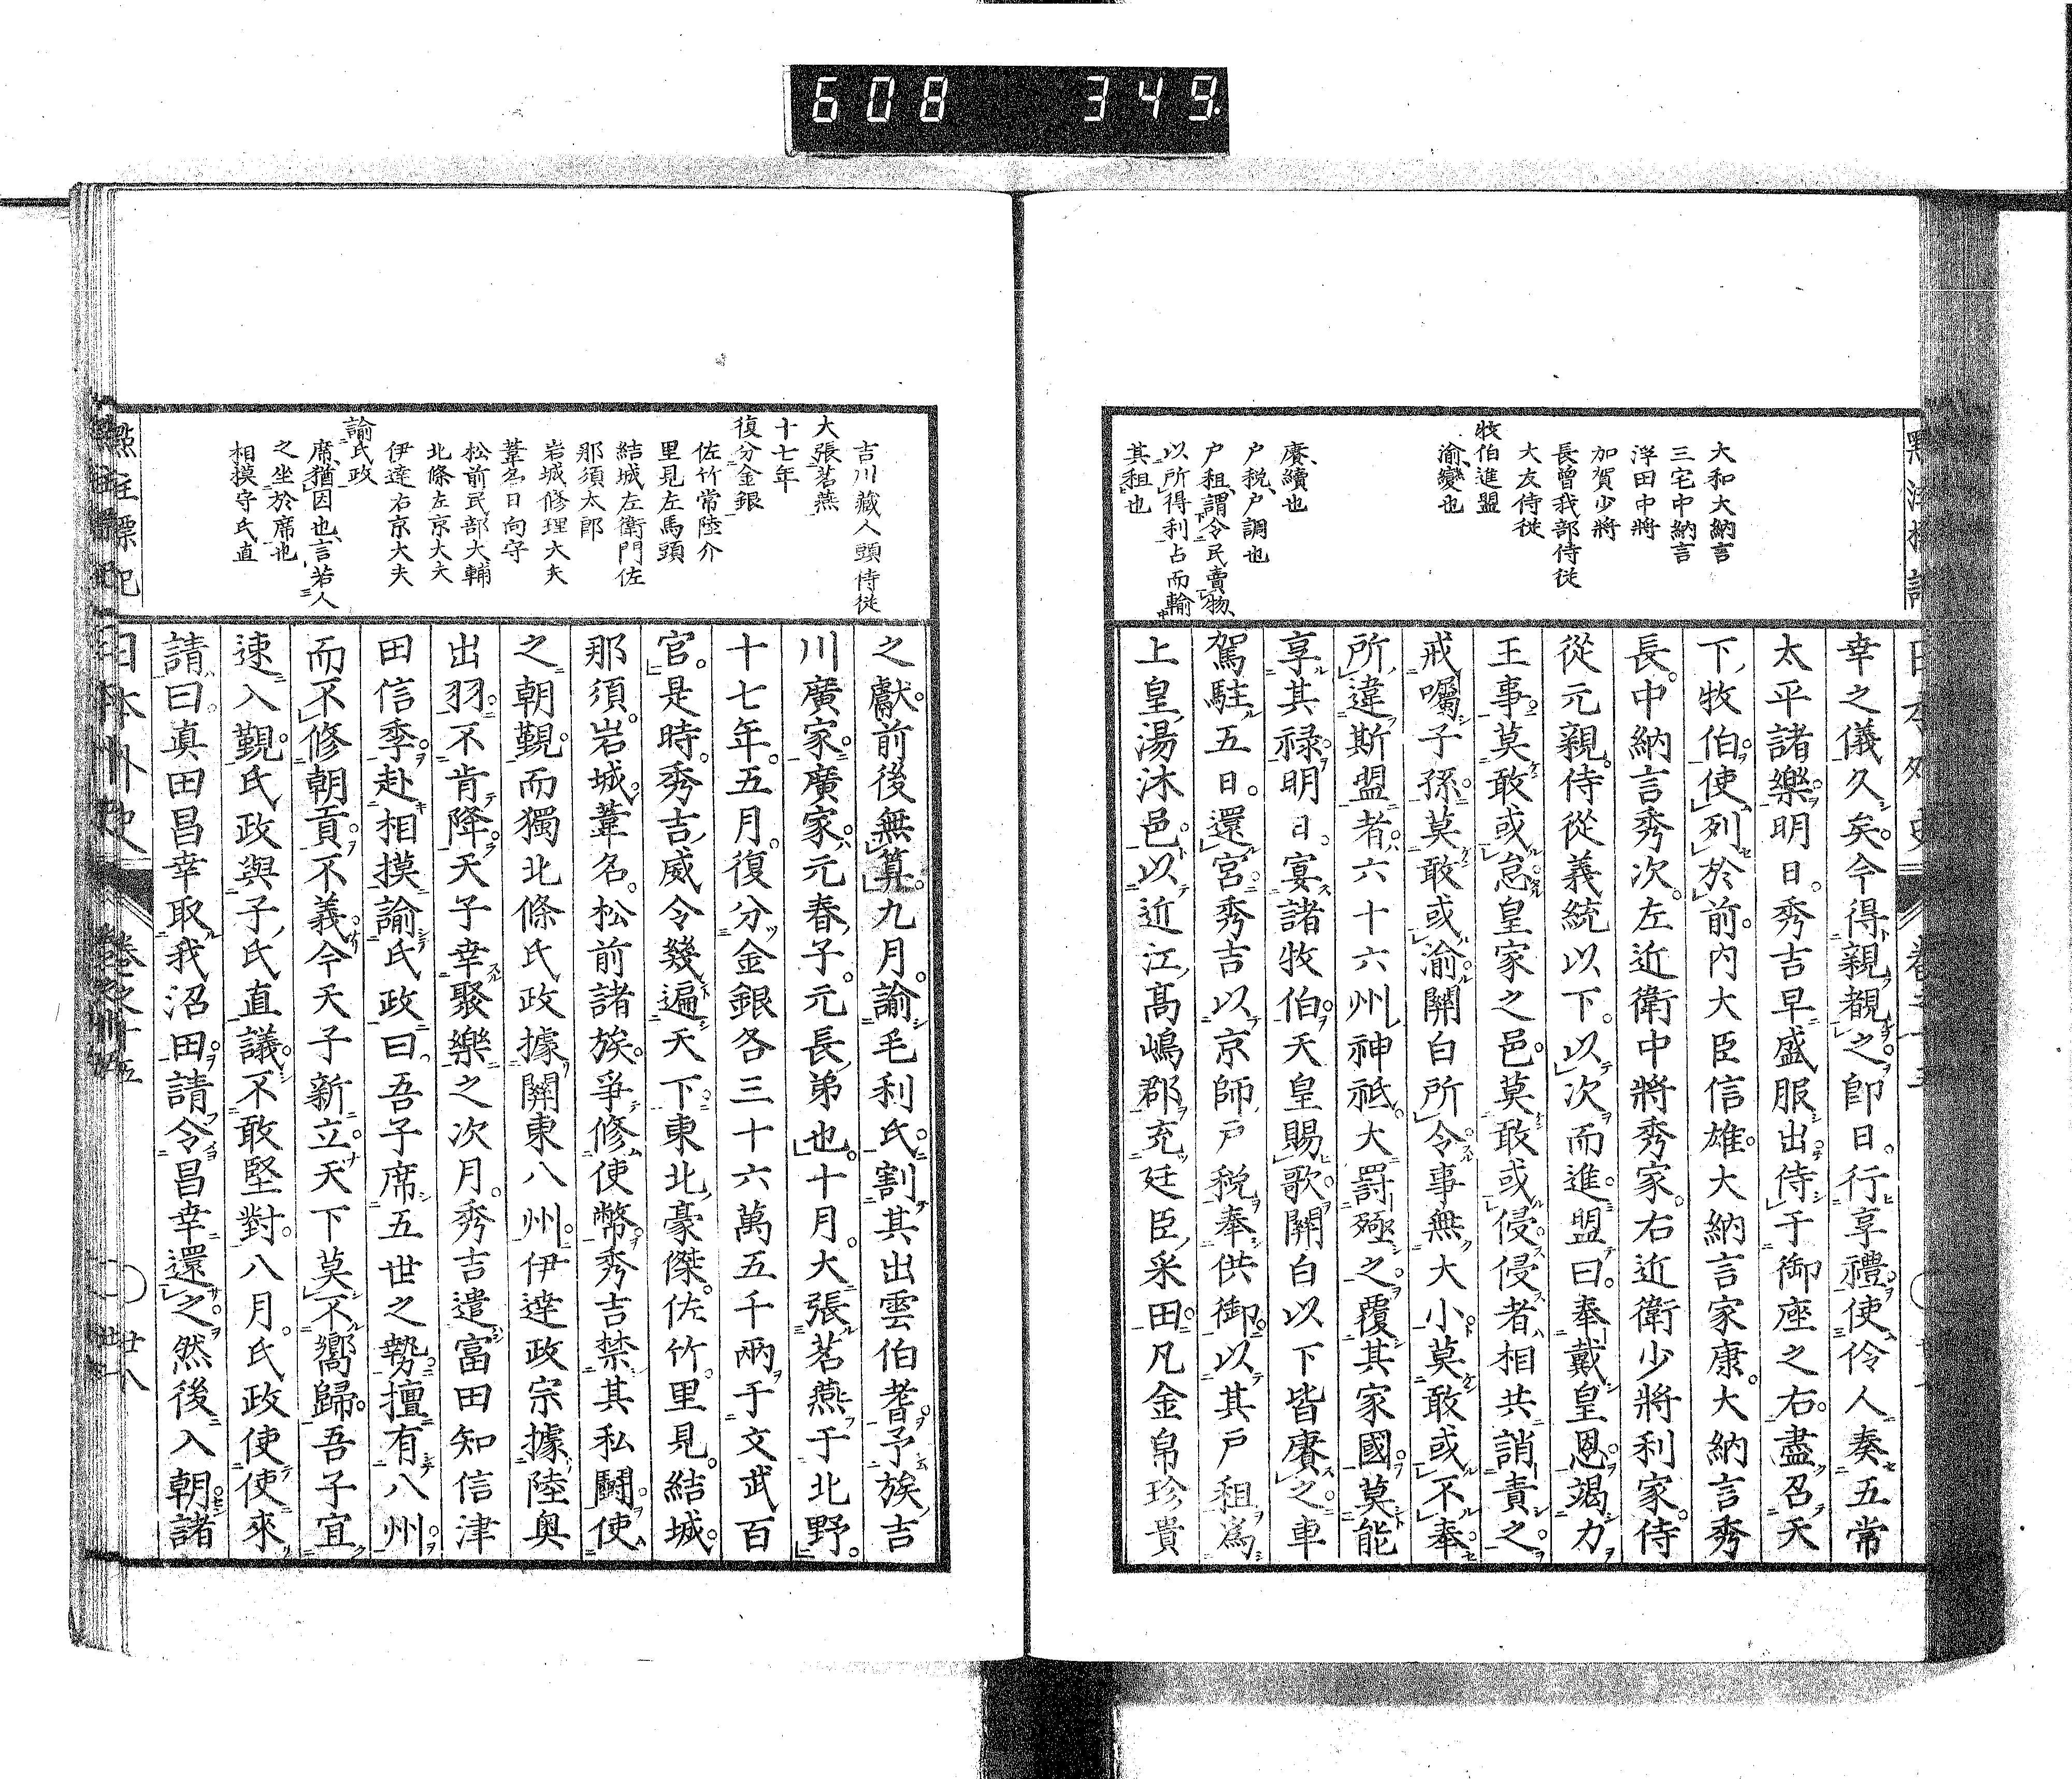 608 349
大和大納言
三宅中納言
浮田中將
加賀少將
長曾我部侍従
大友侍従
牧伯進盟
渝變也
賡續也
戸税戸調也
戸租謂令民賣物
以所得利占而輸
其租也
幸之儀久矣今得親覩之即日行享禮使伶人奏五常
太平諸樂明日秀吉早盛服出侍于御座之右盡召天
下牧伯使列於前内大臣信雄大納言家康大納言秀
長中納言秀次左近衛中將秀家右近衛少將利家侍
從元親侍從義統以下以次而進盟曰奉戴皇恩竭力
王事莫敢或怠皇家之邑莫敢或侵侵者相共誚責之
戒囑子孫莫敢或渝關白所令事無大小莫敢或不奉
所違斯盟者六十六州神祇大罰殛之覆其家國莫能
享其禄明日宴諸牧伯天皇賜歌關白以下皆賡之車
駕駐五日還宮秀吉以京師戸税奉供御以其戸租爲
上皇湯沐邑以近江高嶋郡充廷臣采田凡金帛珍貴
吉川藏人頭侍従
大張茗燕
十七年
復分金銀
佐竹常陸介
里見左馬頭
結城左衛門佐
那須太郎
岩城修理大夫
葦名日向守
松前民部大輔
北條左京大夫
伊達右京大夫
諭氏政
席猶因也言若人
之坐於席也
相摸守氏直
之獻前後無算九月諭毛利氏割其出雲伯耆予族吉
川廣家廣家元春子元長弟也十月大張茗燕于北野
十七年五月復分金銀各三十六萬五千兩于文武百
官是時秀吉威令幾遍天下東北豪傑佐竹里見結城
那須岩城葦名松前諸族爭修使幣秀吉禁其私鬪使
之朝覲而獨北條氏政據關東八州伊達政宗據陸奥
出羽不肯降天子幸聚樂之次月秀吉遣富田知信津
田信季赴相摸諭氏政曰吾子席五世之勢擅有八州
而不修朝貢不義今天子新立天下莫不嚮歸吾子宜
速入覲氏政與子氏直議不敢堅對八月氏政使使來
請曰眞田昌幸取我沼田請令昌幸還之然後入朝諸
日本外史 卷之十五 〇 廿八